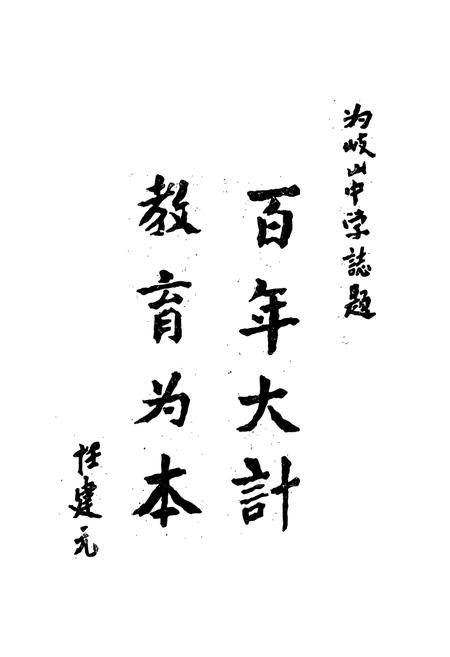 为岐山中学誌题
百年大計
教育为本
任建元